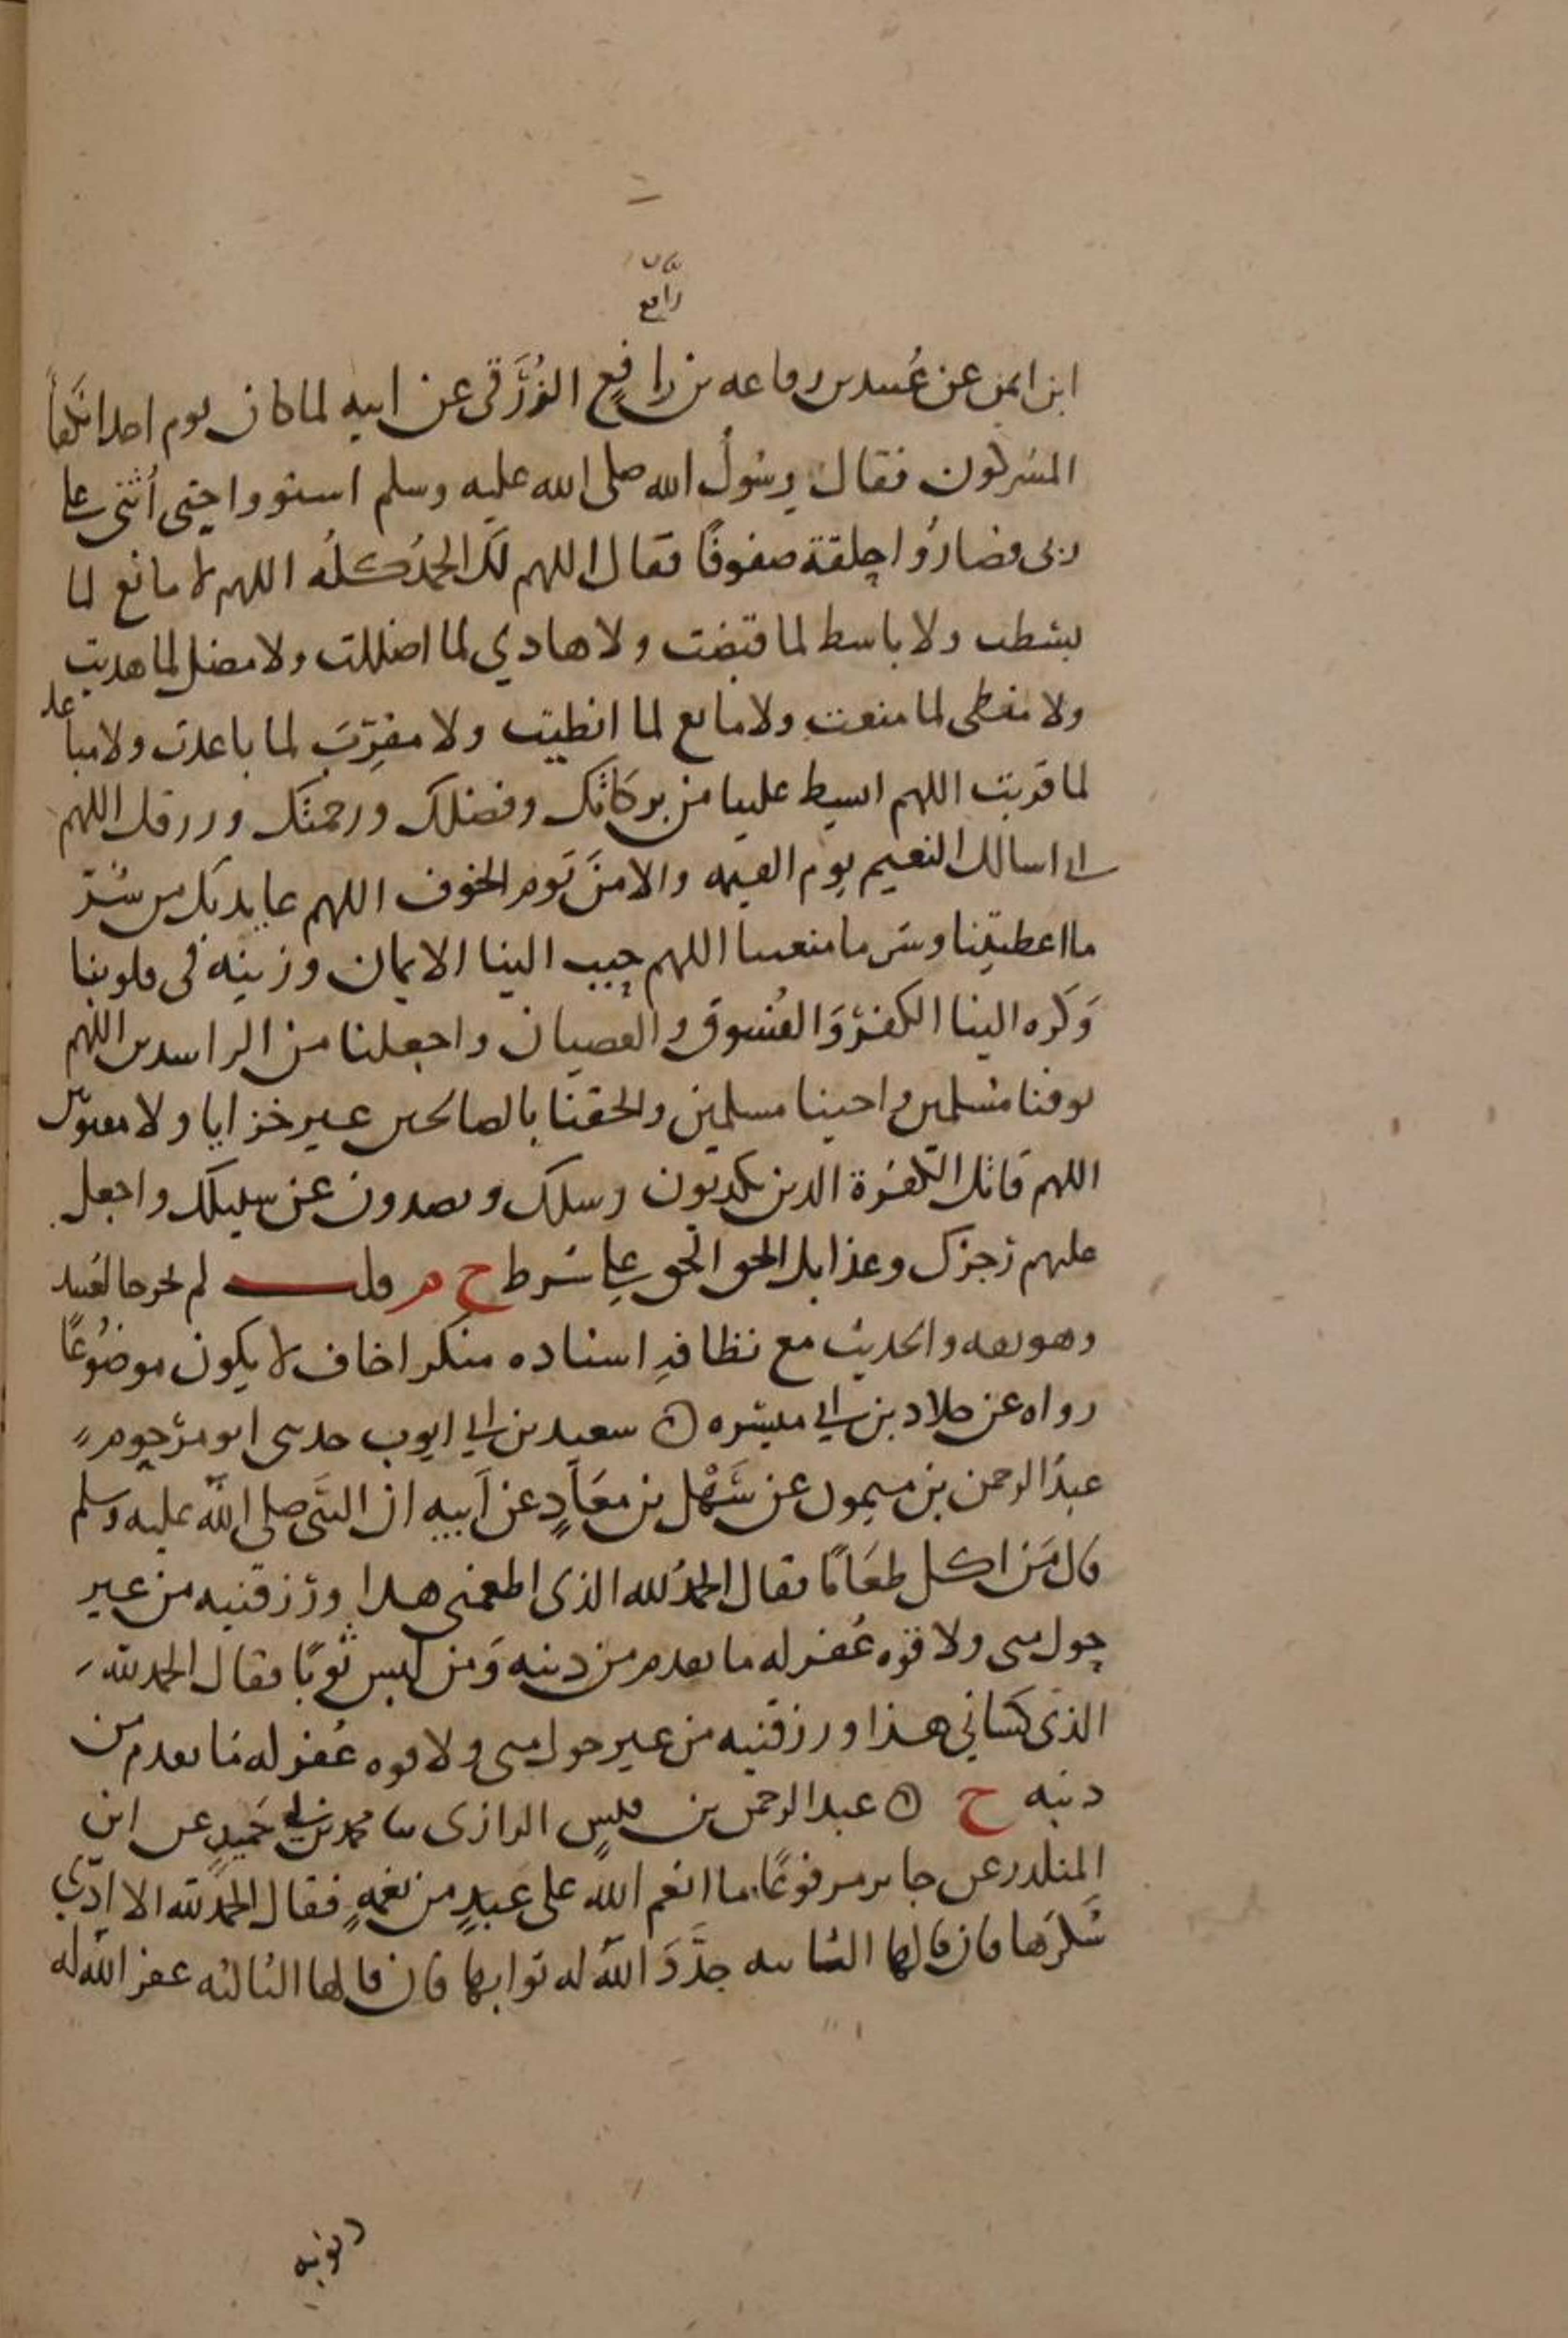 رافع
ابن ايمن عن عُبيد بن رفاعه بن رافعٍ الزُرَقي عن ابيه لما كان يوم احد انكفأ
المشركون فقال رسُولُ الله صلى الله عليه وسلم استووا حتى أُثني على
ربي فصارُوا خلفه صفوفًا فقال اللهم لك الحمدُ كلهُ اللهم لا مانع لما
بسطت ولا باسط لما قبضت ولا هادي لما اضللت ولا مضل لما هديت
ولا معطى لما منعت ولا مانع لما انطيت ولا مقرِّبَ لما باعدت ولا مباعد
لما قربت اللهم ابسط علينا من بركاتك وفضلك ورحمتك ورزقك اللهم
اني اسالك النعيم يوم القيمه والامنَ يَوم الخوف اللهم عايذ بك من شرّ
ما اعطيتنا وشر ما منعتنا اللهم حبب الينا الايمان وزينه في قلوبنا
وَكَره الينا الكفرَ وَالفُسوق والعصيان واجعلنا من الراشدين اللهم
توفنا مسلمين واحينا مسلمين والحقنا بالصالحين غير خزايا ولا مفتونين
اللهم قاتل الكفرة الذين يكذبون رسلك ويصدون عن سبيلك واجعل
عليهم رجزك وعذابك اله الحق الحق على شرط خ م قلت لم يخرجا لعُبيد
وهو ثقه والحديث مع نظافةِ اسناده منكر اخاف لا يكون موضُوعًا
رواه عن خلاد بن ابي ميسره ۞ سعيد بن ابي ايوب حدثني ابو مرحوم
عبدُ الرحمن بن ميمون عن سَهْل بن معَاذٍ عن اَبيه ان النبَّي صلى الله عليه وسلم
قال مَن اكل طعَامًا فقال الحمدُ لله الذي اطعمني هذا ورزقنيه من غير
حول مني ولا قوه غُفر له ما تقدم من ذنبه وَمن لبس ثوبًا فقال الحمد لله
الذي كسَاني هذا ورزقنيه من غير حول مني ولا قوه غُفر له مَا تقدم من
ذنبه خ ۞ عبد الرحمن بن قيسٍ الرازي ثنا محمد بن ابي حَميدٍ عن ابن
المنكدر عن جابر مرفوعًا ما انعم الله على عبدٍ من نعمةٍ فقال الحمد لله الا ادّي
شكرَها فان قالها الثانيه جدَّدَ اللهُ له ثوابها فان قالها الثالثه غفر الله له
ذنوبه